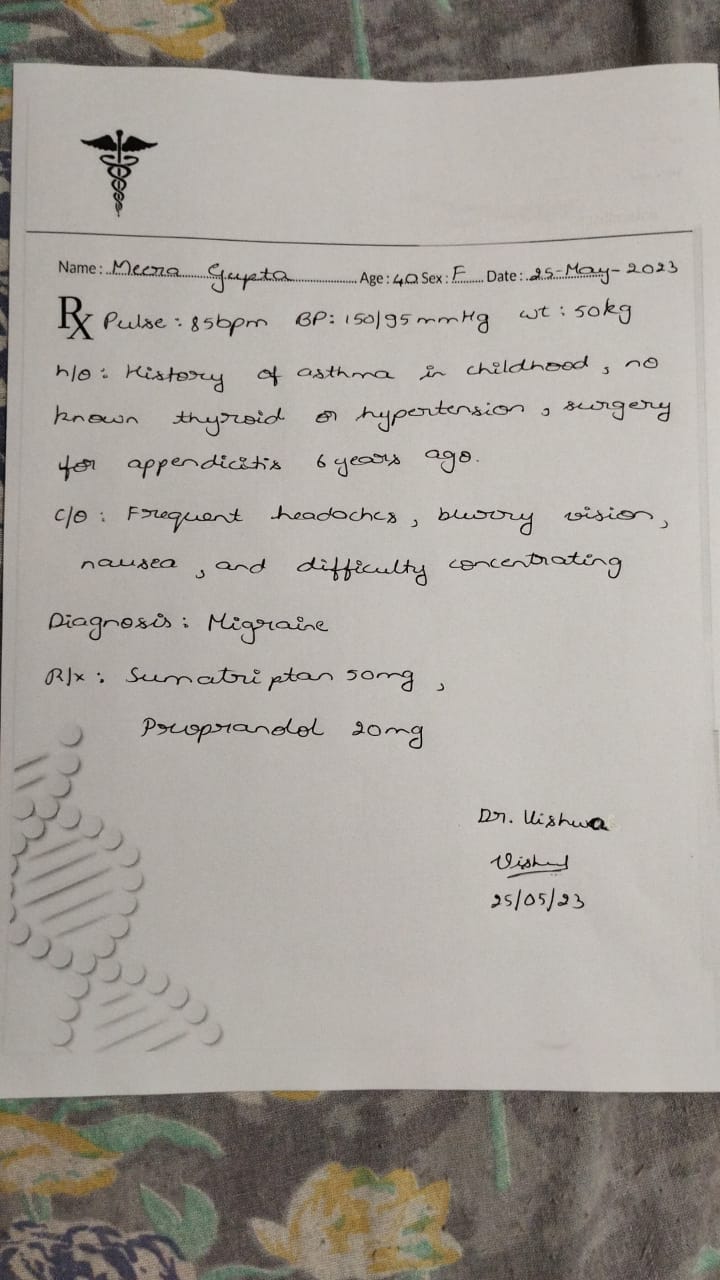 Name: Meena Gupta Age: 40 Sex: F Date: 25-May-2023
Rx Pulse: 85bpm BP: 150/95 mmHg wt: 50kg
h/o: History of asthma in childhood, no
known thyroid or hypertension, surgery
for appendicitis 6 years ago.
c/o: Frequent headaches, blurry vision,
nausea, and difficulty concentrating
Diagnosis: Migraine
R/x: Sumatriptan 50mg,
Propranolol 20mg
Dr. Vishwa
25/05/23